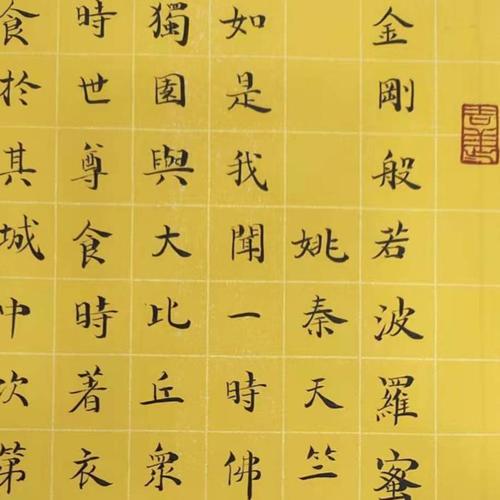 金剛般若波羅蜜
姚秦天竺
如是我聞一時佛
獨園與大比丘眾
時世尊食時著衣
食於其城中次第